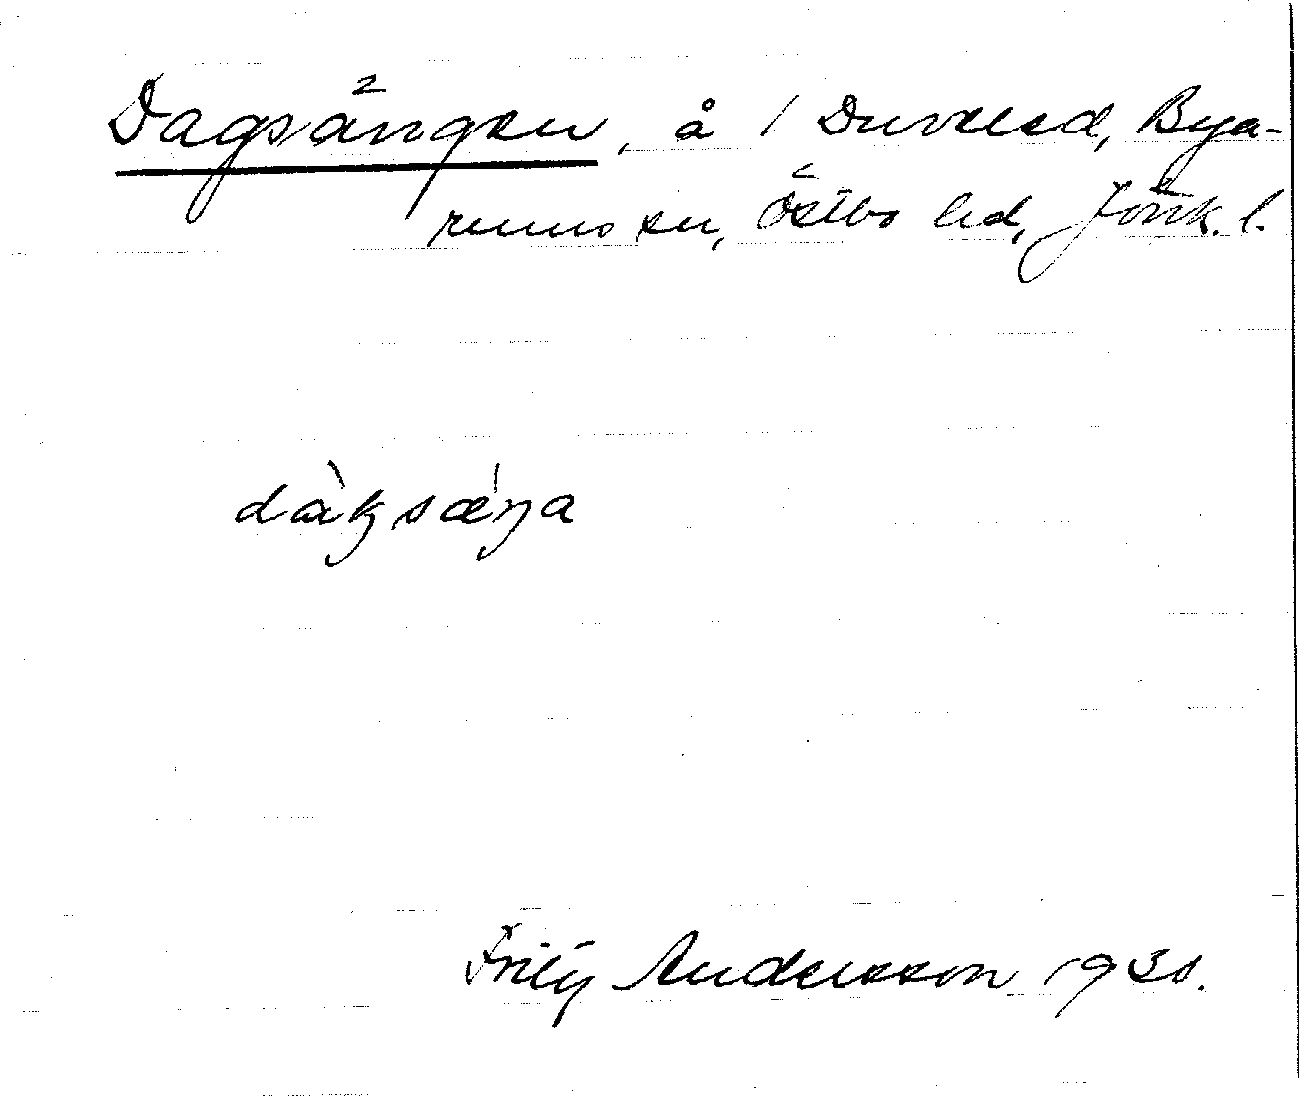 Dagsängen, å 1 Duveled, Bya-
rums sn, Östbo hd, Jönk. l.
dàksæŋa
Frity Andersson 1930.